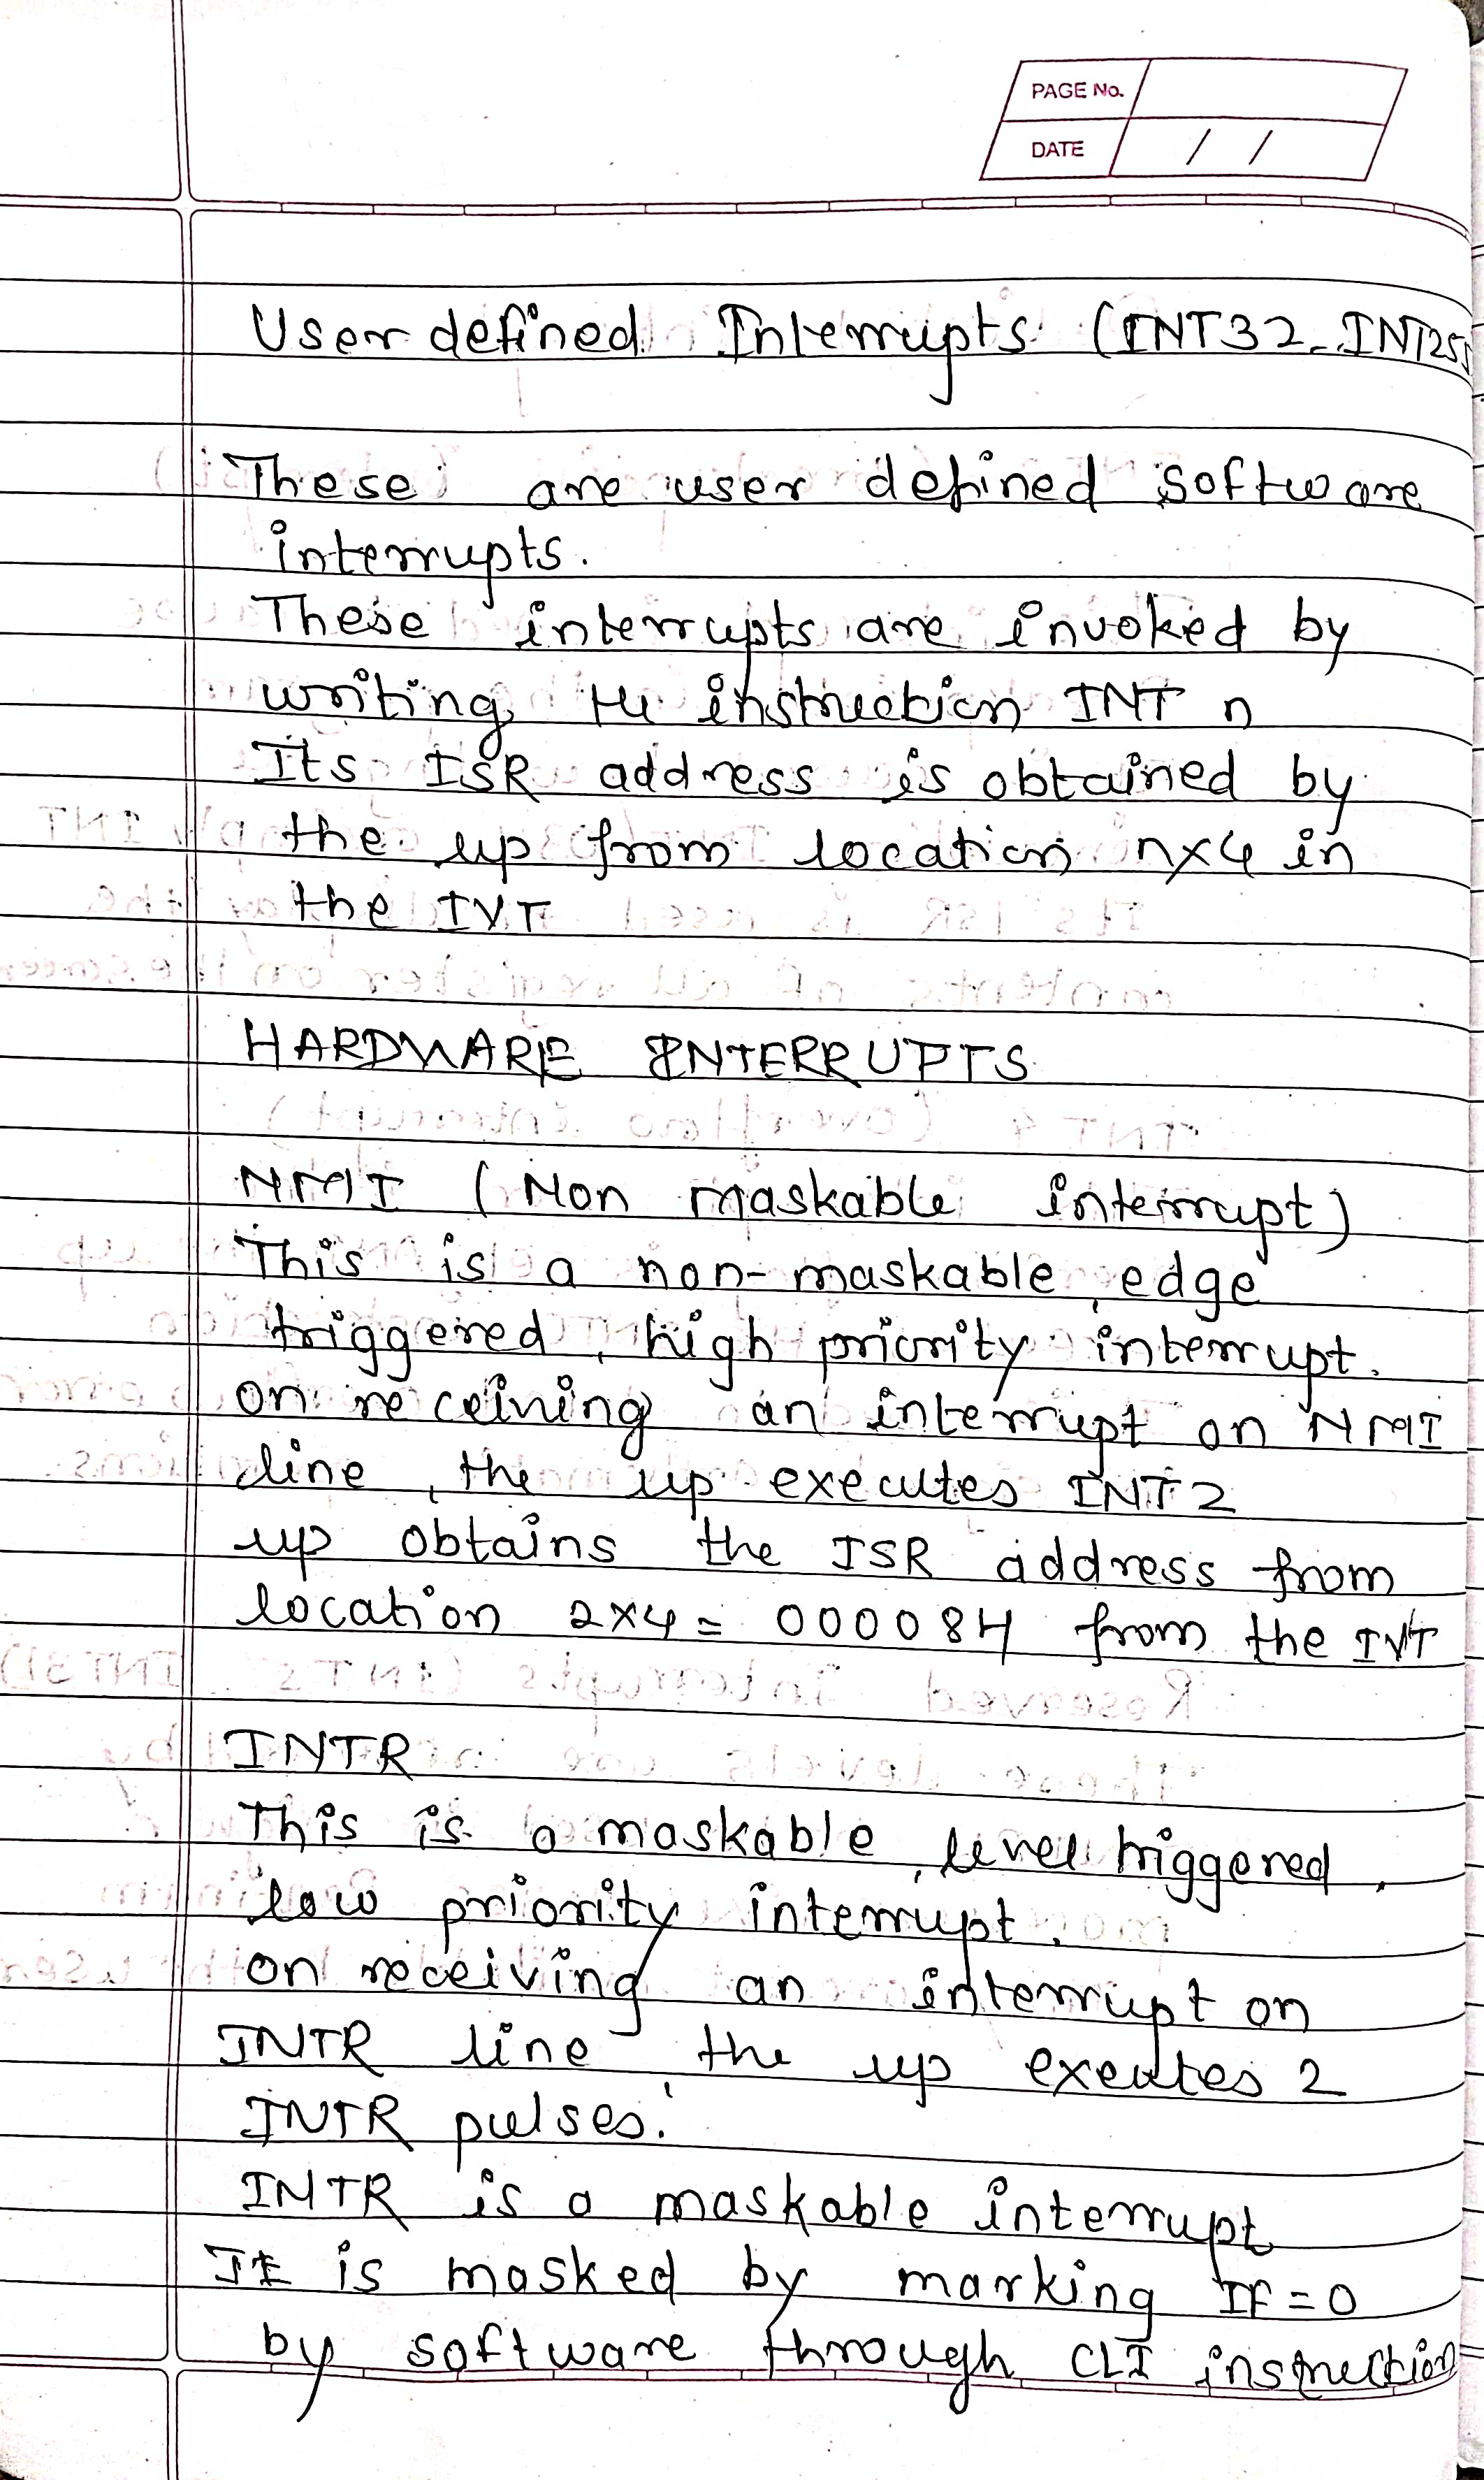 PAGE No.
DATE / /
User defined Interrupts (INT32-INT255
These are user defined software
interrupts.
These interrupts are invoked by
writing the instruction INT n
Its ISR address is obtained by
the up from location nx4 in
the IVT
HARDWARE INTERRUPTS
NMI (Non maskable interrupt)
This is a non-maskable, edge
triggered, high priority interrupt.
on receiving an interrupt on NMI
line, the up executes INT2
up obtains the ISR address from
location 2x4 = 00008H from the IVT
INTR
This is a maskable, level triggered,
low priority interrupt.
on receiving an interrupt on
INTR line, the up executes 2
INTR pulses.
INTR is a maskable interrupt
It is masked by marking IF=0
by software through CLI instruction